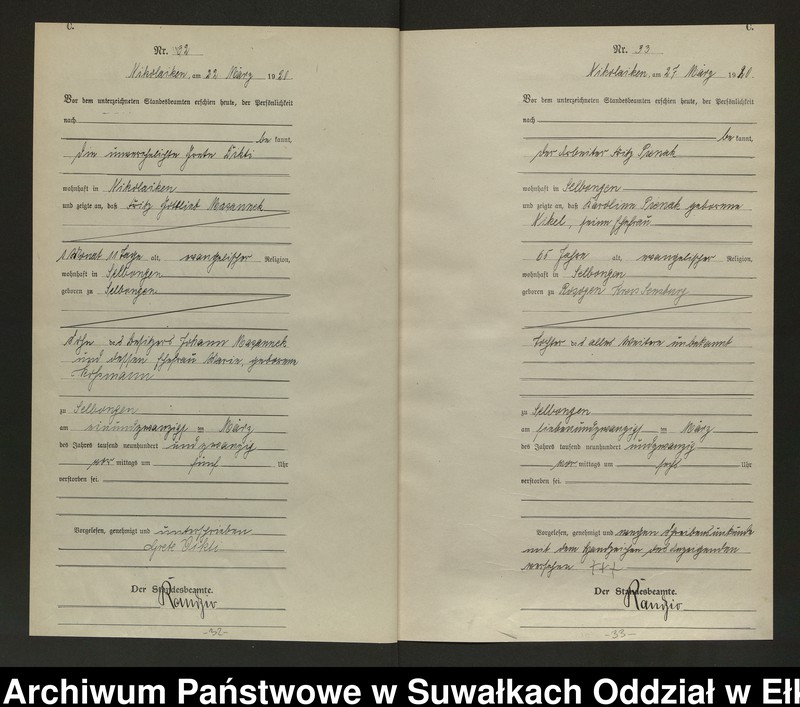 C.
Nr. 32
Nikolaiken, am 22 März 1920
Vor dem unterzeichneten Standesbeamten erschien heute, der Persönlichkeit
nach
be kannt,
die unverehelichte Grete
wohnhaft in Nikolaiken
und zeigte an, daß Fritz Gottlieb Mazannek
1 Monat 11 Tage alt, evangelischer Religion,
wohnhaft in Selbongen
geboren zu Selbongen
Sohn des Besitzers Johann Mazannek
und dessen Ehefrau Marie, geborene
zu Selbongen
am einundzwanzigst en März
des Jahres tausend neunhundert undzwanzig
vor mittags um fünf Uhr
verstorben sei.
Vorgelesen, genehmigt und unterschrieben
Der Standesbeamte.
Randzio
-32-
C.
Nr. 33
Nikolaiken, am 27 März 1920.
Vor dem unterzeichneten Standesbeamten erschien heute, der Persönlichkeit
nach
be kannt,
der Arbeiter Fritz
wohnhaft in Selbongen
und zeigte an, daß Karoline geborene
Nikel, seine Ehefrau
65 Jahre alt, evangelischer Religion,
wohnhaft in Selbongen
geboren zu Kreis Sensburg
Tochter alles Weitere unbekannt
zu Selbongen
am siebenundzwanzigst en März
des Jahres tausend neunhundert undzwanzig
vor mittags um sechs Uhr
verstorben sei.
Vorgelesen, genehmigt und wegen Schreibensunkunde
mit dem Handzeichen des Anzeigenden
versehen +++
Der Standesbeamte.
Randzio
-33-
Archiwum Państwowe w Suwałkach Oddział w Ełk